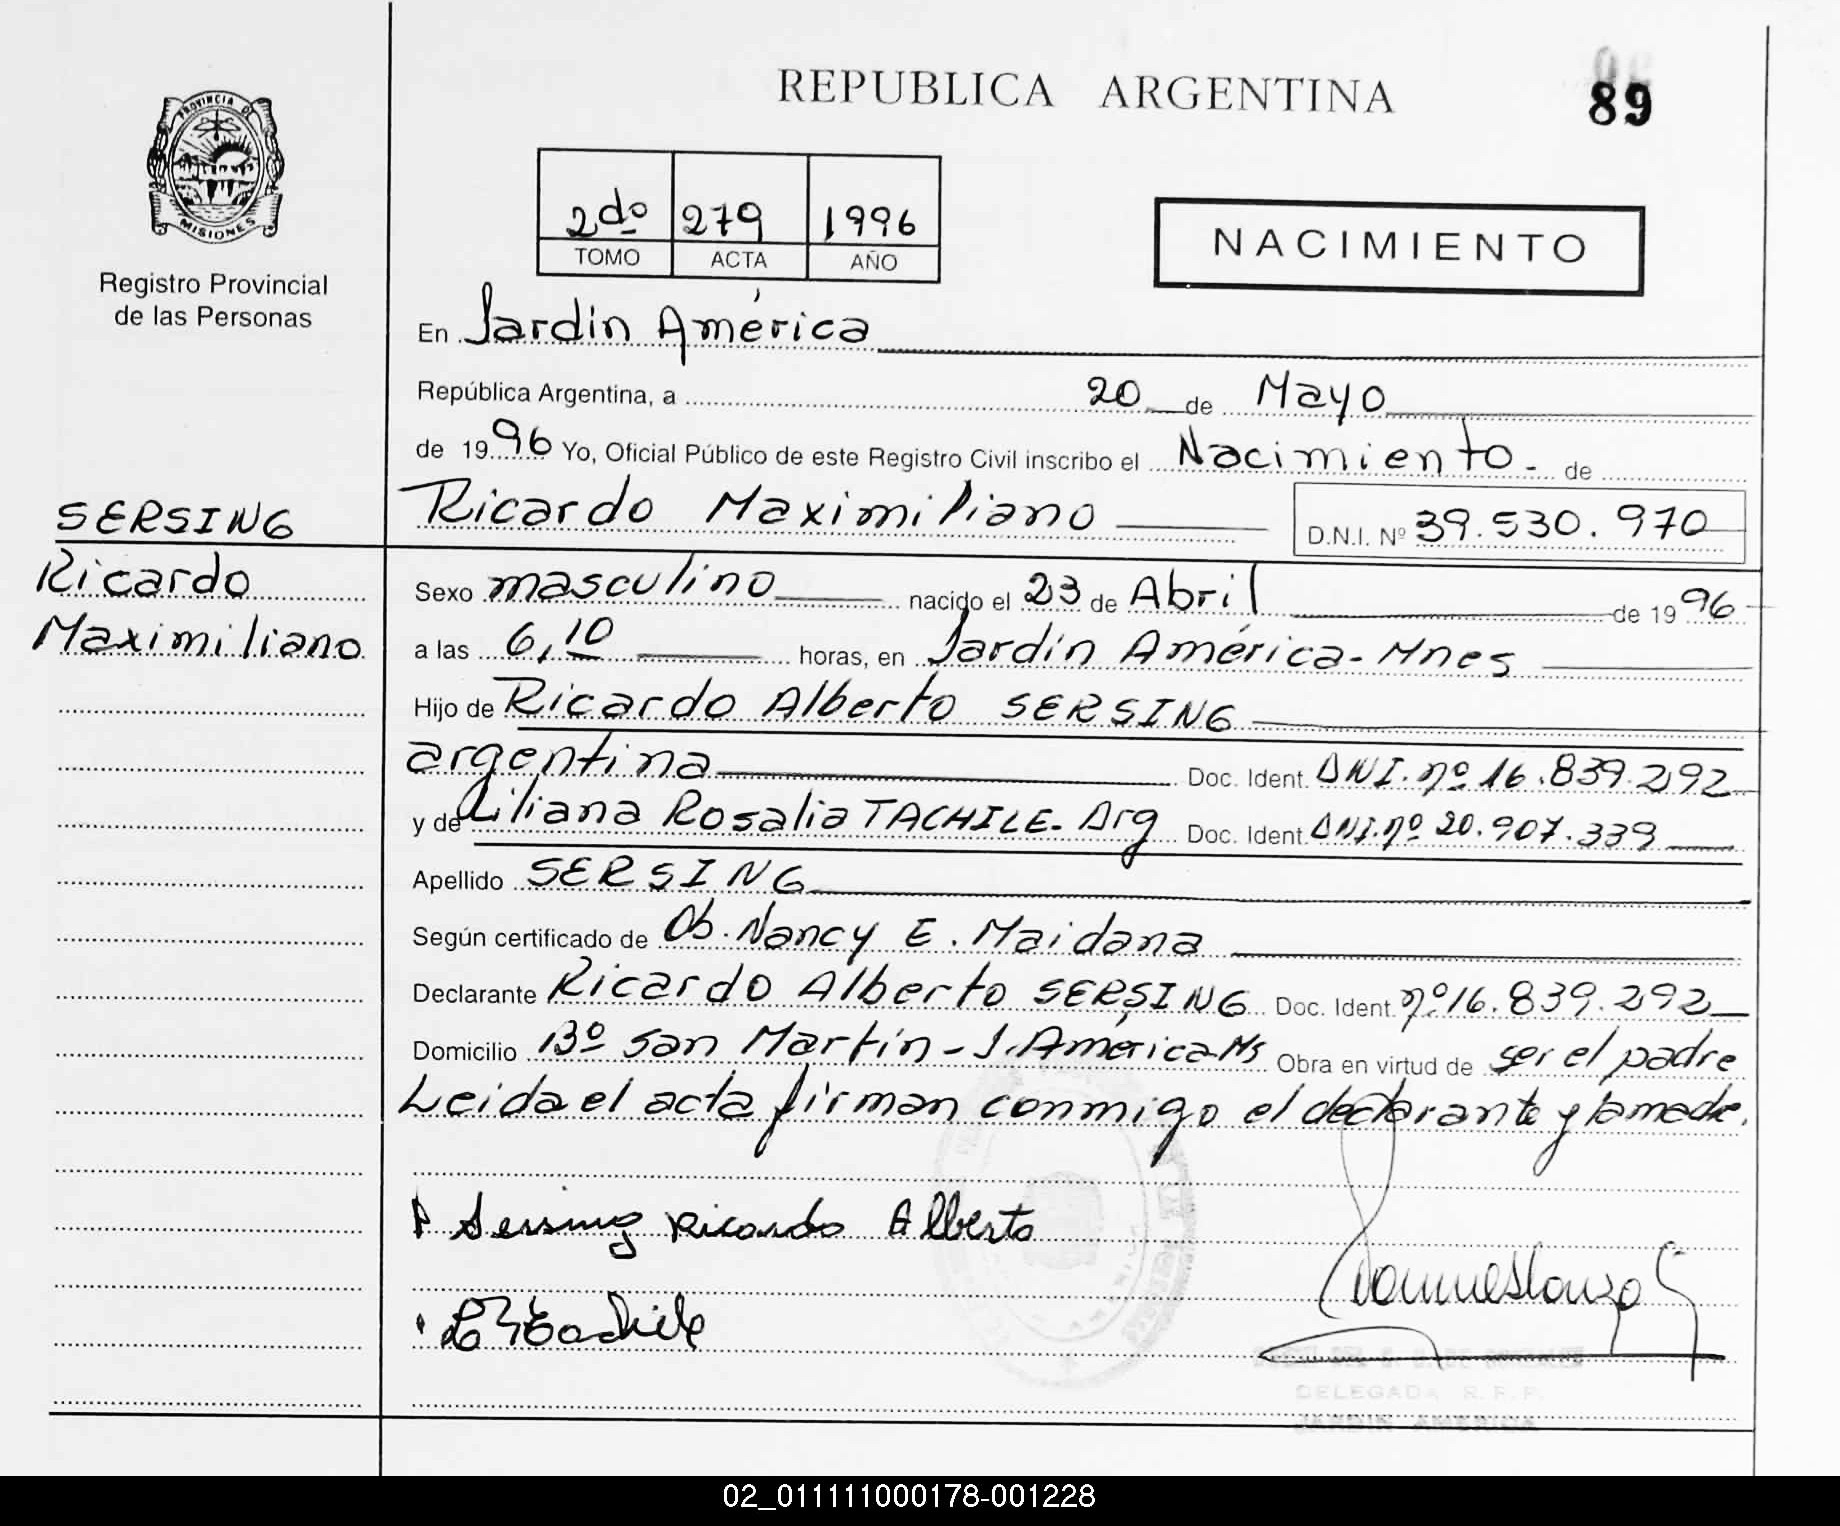 REPUBLICA ARGENTINA
89
PROVINCIA DE
MISIONES
Registro Provincial
de las Personas
2do 279 1996
TOMO ACTA AÑO
NACIMIENTO
En Jardín América
República Argentina, a 20 de Mayo
de 1996 Yo, Oficial Público de este Registro Civil inscribo el Nacimiento. de
SERSING
Ricardo
Maximiliano
Ricardo Maximiliano D.N.I. Nº 39.530.970
Sexo masculino nacido el 23 de Abril de 1996
a las 6,10 horas, en Jardín América-Mnes
Hijo de Ricardo Alberto SERSING
argentina Doc. Ident. DNI. nº 16.839.292
y de Liliana Rosalia TACHILE. Arg Doc. Ident. DNI. nº 20.907.339
Apellido SERSING
Según certificado de Ob. Nancy E. Maidana
Declarante Ricardo Alberto SERSING Doc. Ident. nº 16.839.292
Domicilio Bº San Martín - J. América-Ms Obra en virtud de ser el padre
Leida el acta firman conmigo el declarante y la madre.
Sersing Ricardo Alberto
DELEGADA R.P.P.
JARDIN AMERICA
02_011111000178-001228